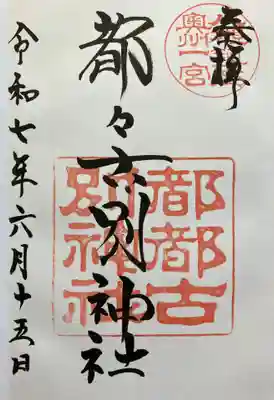 奉拝
奥州一宮
都々古別神社
都都古
別神社
令和七年六月十五日